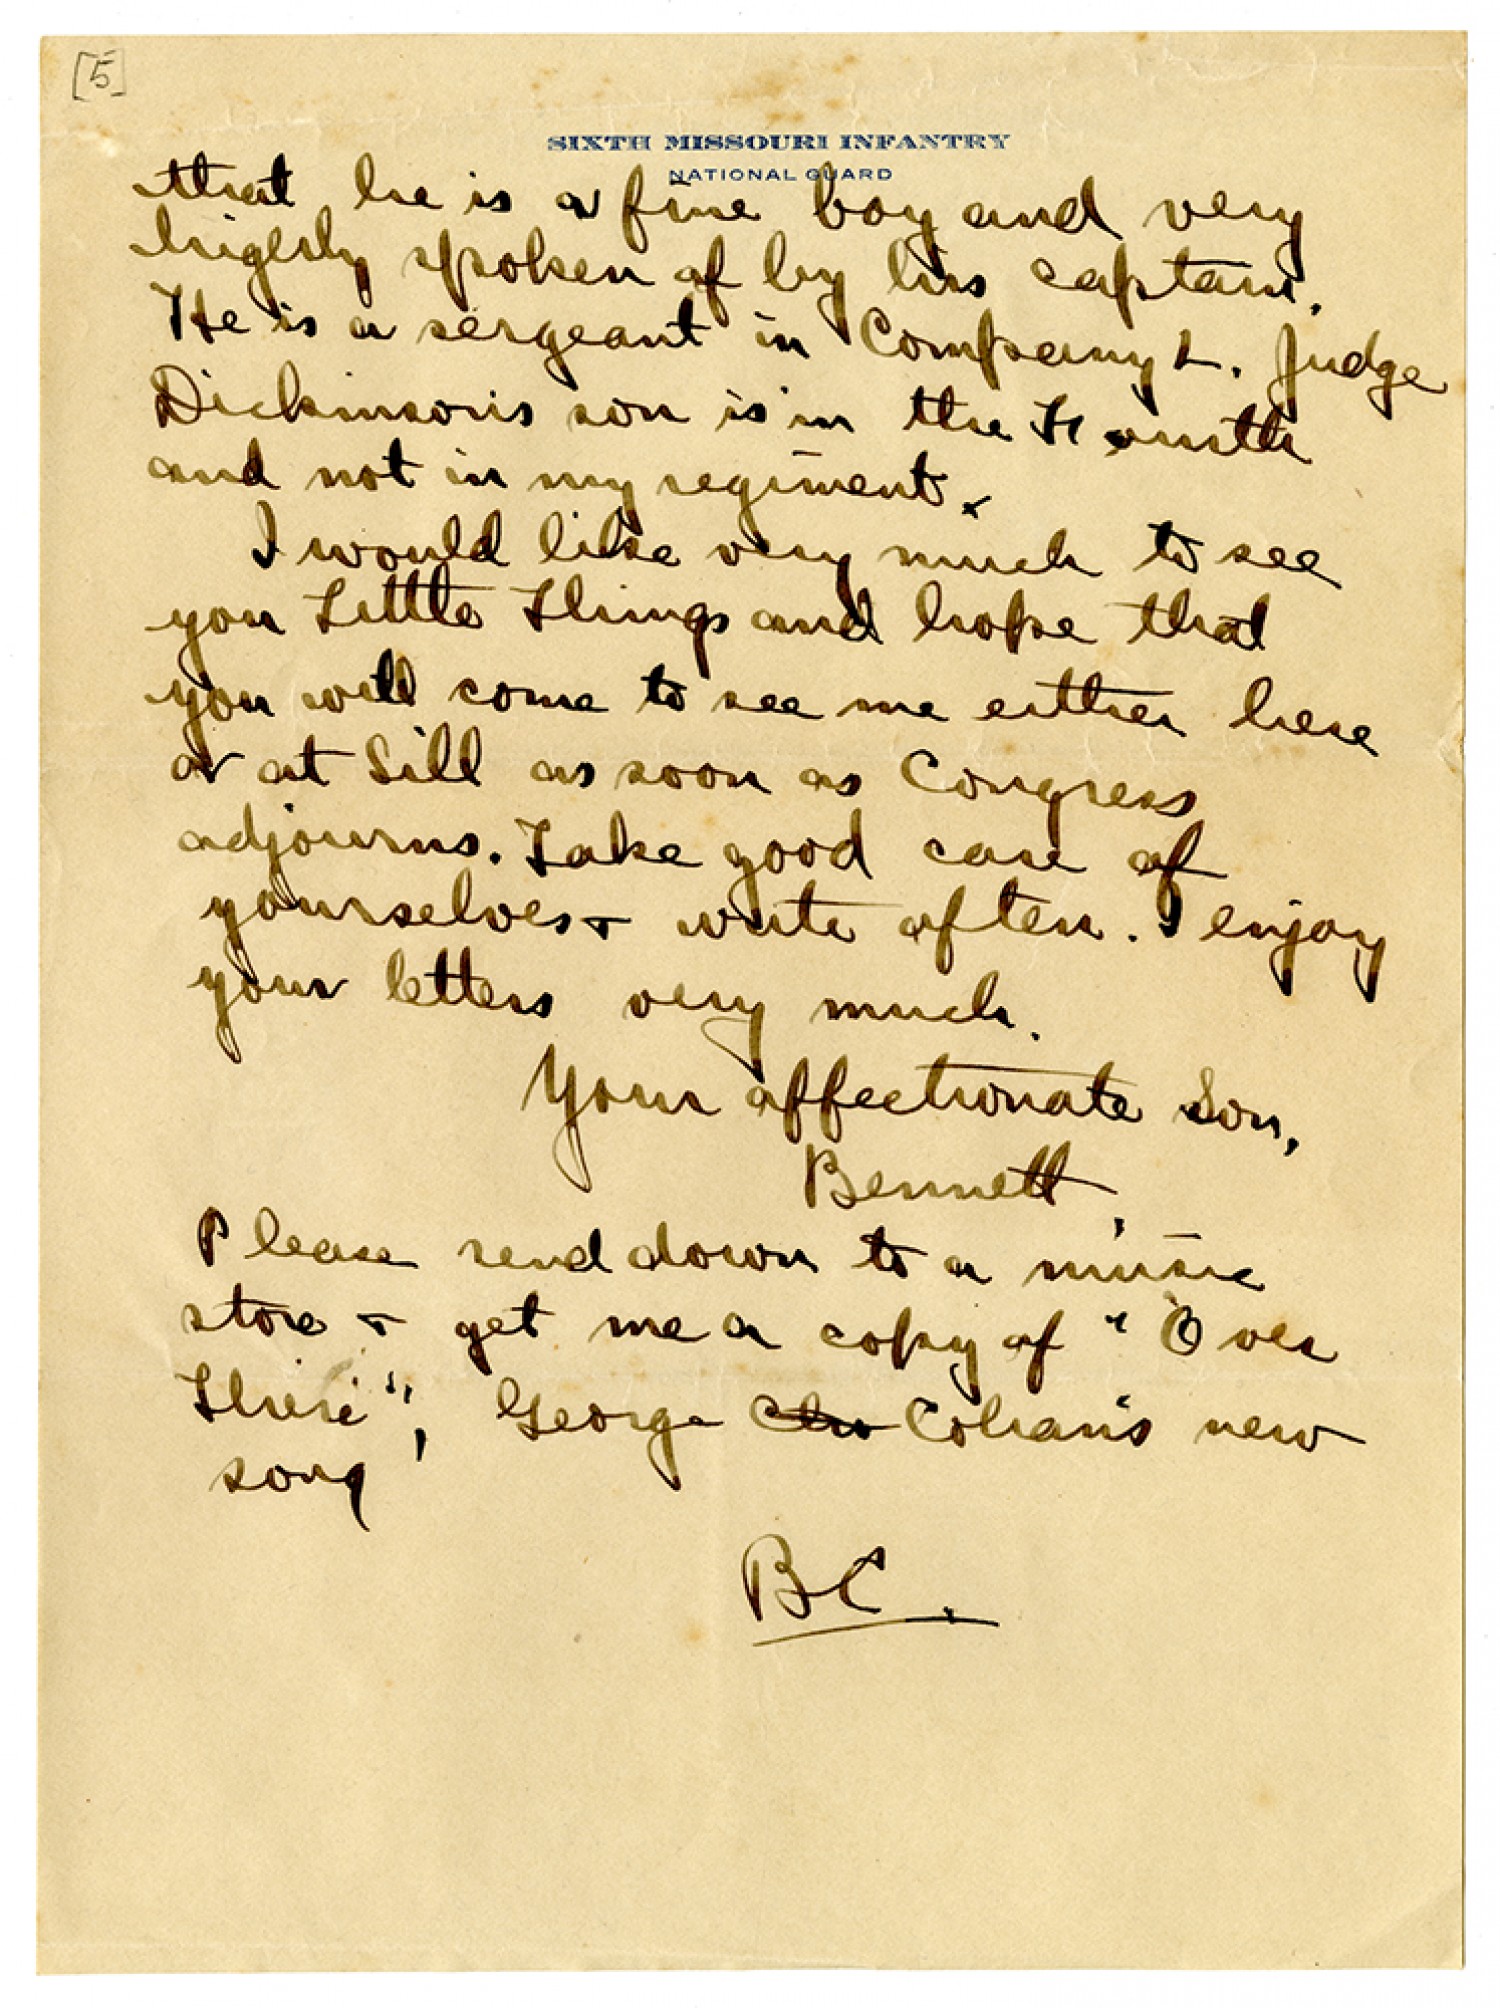 [5]
SIXTH MISSOURI INFANTRY
NATIONAL GUARD
that he is a fine boy and very
highly spoken of by his captain.
He is a sergeant in Company L. Judge
Dickinson's son is in the Fourth
and not in my regiment.
I would like very much to see
you Little Things and hope that
you will come to see me either here
or at Sill as soon as Congress
adjourns. Take good care of
yourselves + write often. I enjoy
your letters very much.
Your affectionate Son,
Bennett,
Please send down to a music
store + get me a copy of "Over
There", George Cho Cohan's new
song
BC.